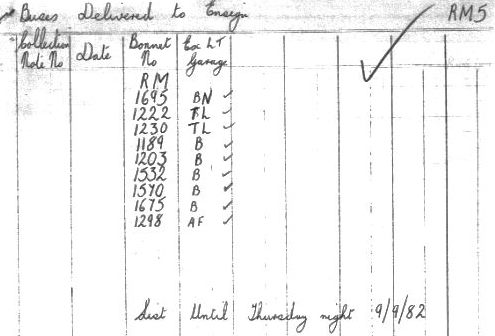 Buses Delivered to Ensign RM5
Collection Note No Date Bonnet No Ex LT Garage
RM
1695 BN ✓
1222 TL ✓
1230 TL ✓
1189 B ✓
1203 B ✓
1532 B ✓
1570 B ✓
1675 B ✓
1298 AF ✓
List Until Thursday night 9/9/82